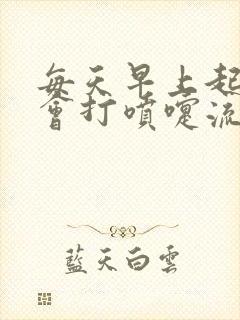 每天早上起
會打噴嚏流
藍天白雲